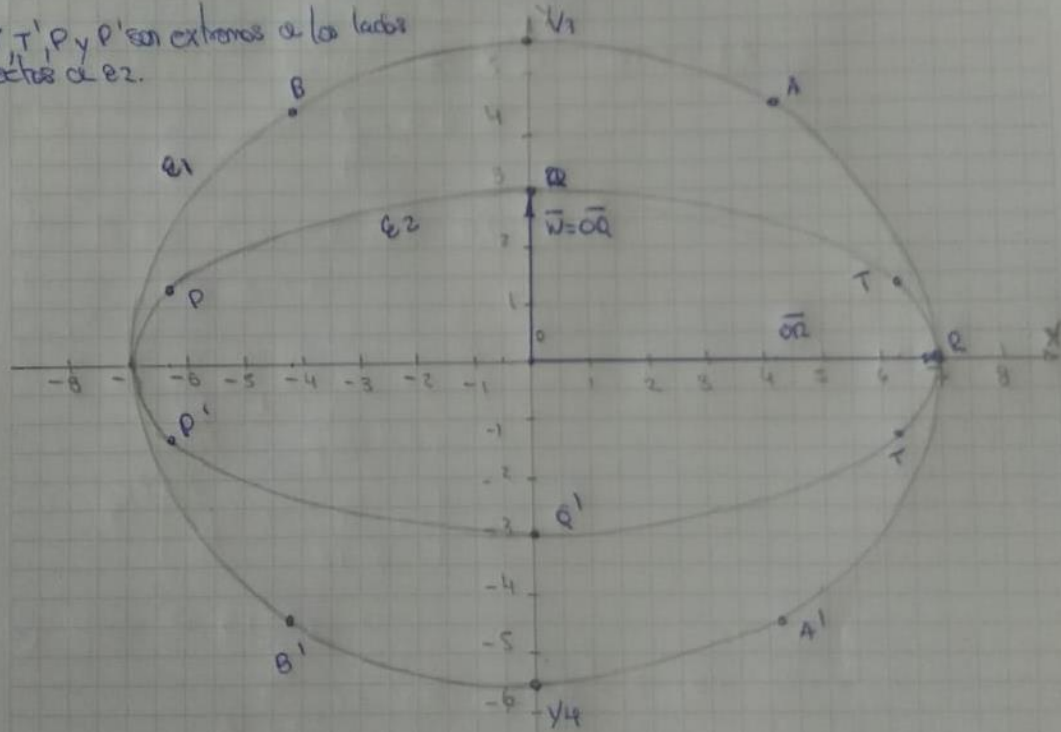 T' P y P' son extremos a los lados
rectos a e2.
V1
B
A
4
e1
3
Q
e2
w=OQ
2
P
T
1
0
OR
R
X
-8 - -6 -5 -4 -3 -2 -1 1 2 3 4 6 7 8
P'
-1
T
-2
Q'
-3
-4
B'
-5
A'
-6
V4